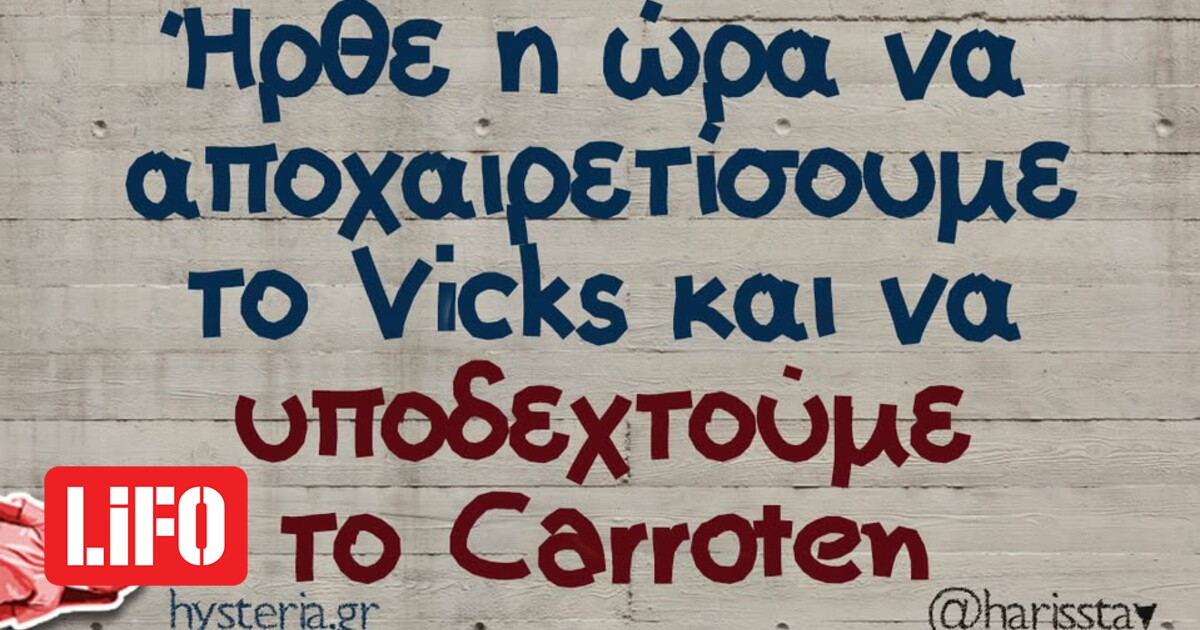 Ήρθε η ώρα να
αποχαιρετίσουμε
το Vicks και να
υποδεχτούμε
το Carroten
LiFO
hysteria.gr
@harisstav